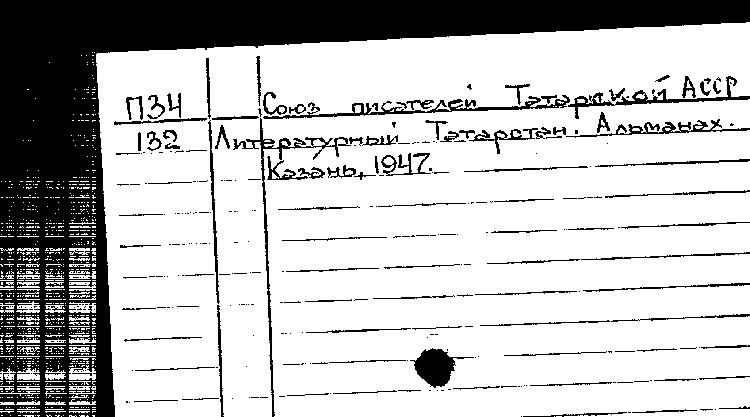 П34 Союз писателей Татарской АССР
132 Литературный Татарстан. Альманах.
Казань, 1947.